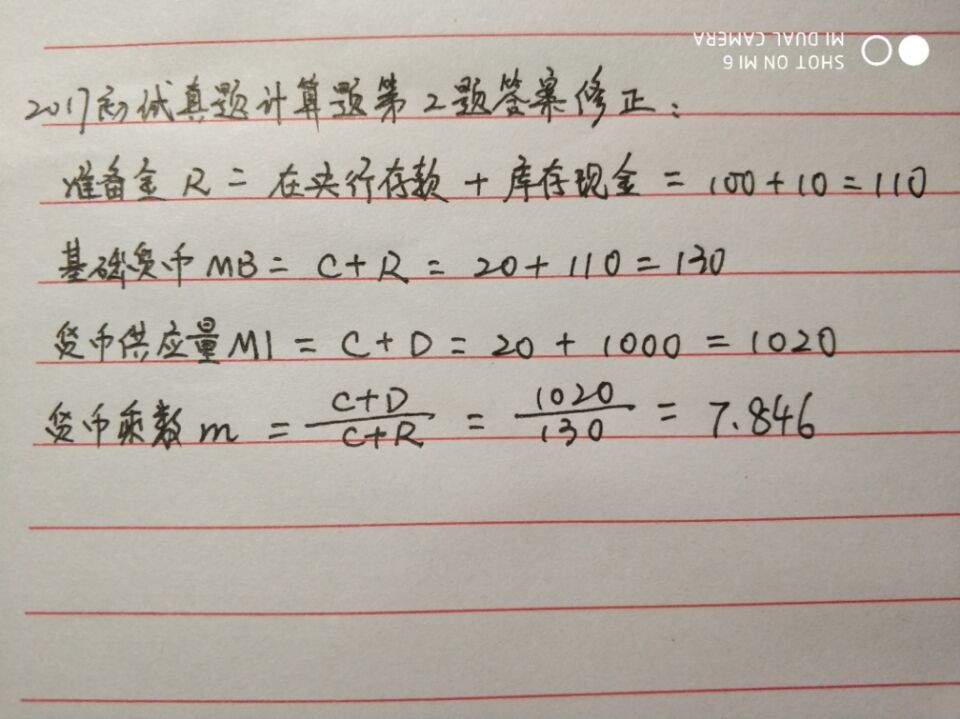 SHOT ON MI 6
MI DUAL CAMERA
2017初试真题计算题第2题答案修正:
准备金 R = 在央行存款 + 库存现金 = 100+10=110
基础货币 MB = C+R = 20+110=130
货币供应量M1 = C+D = 20+1000=1020
货币乘数 m = (C+D)/(C+R) = 1020/130 = 7.846